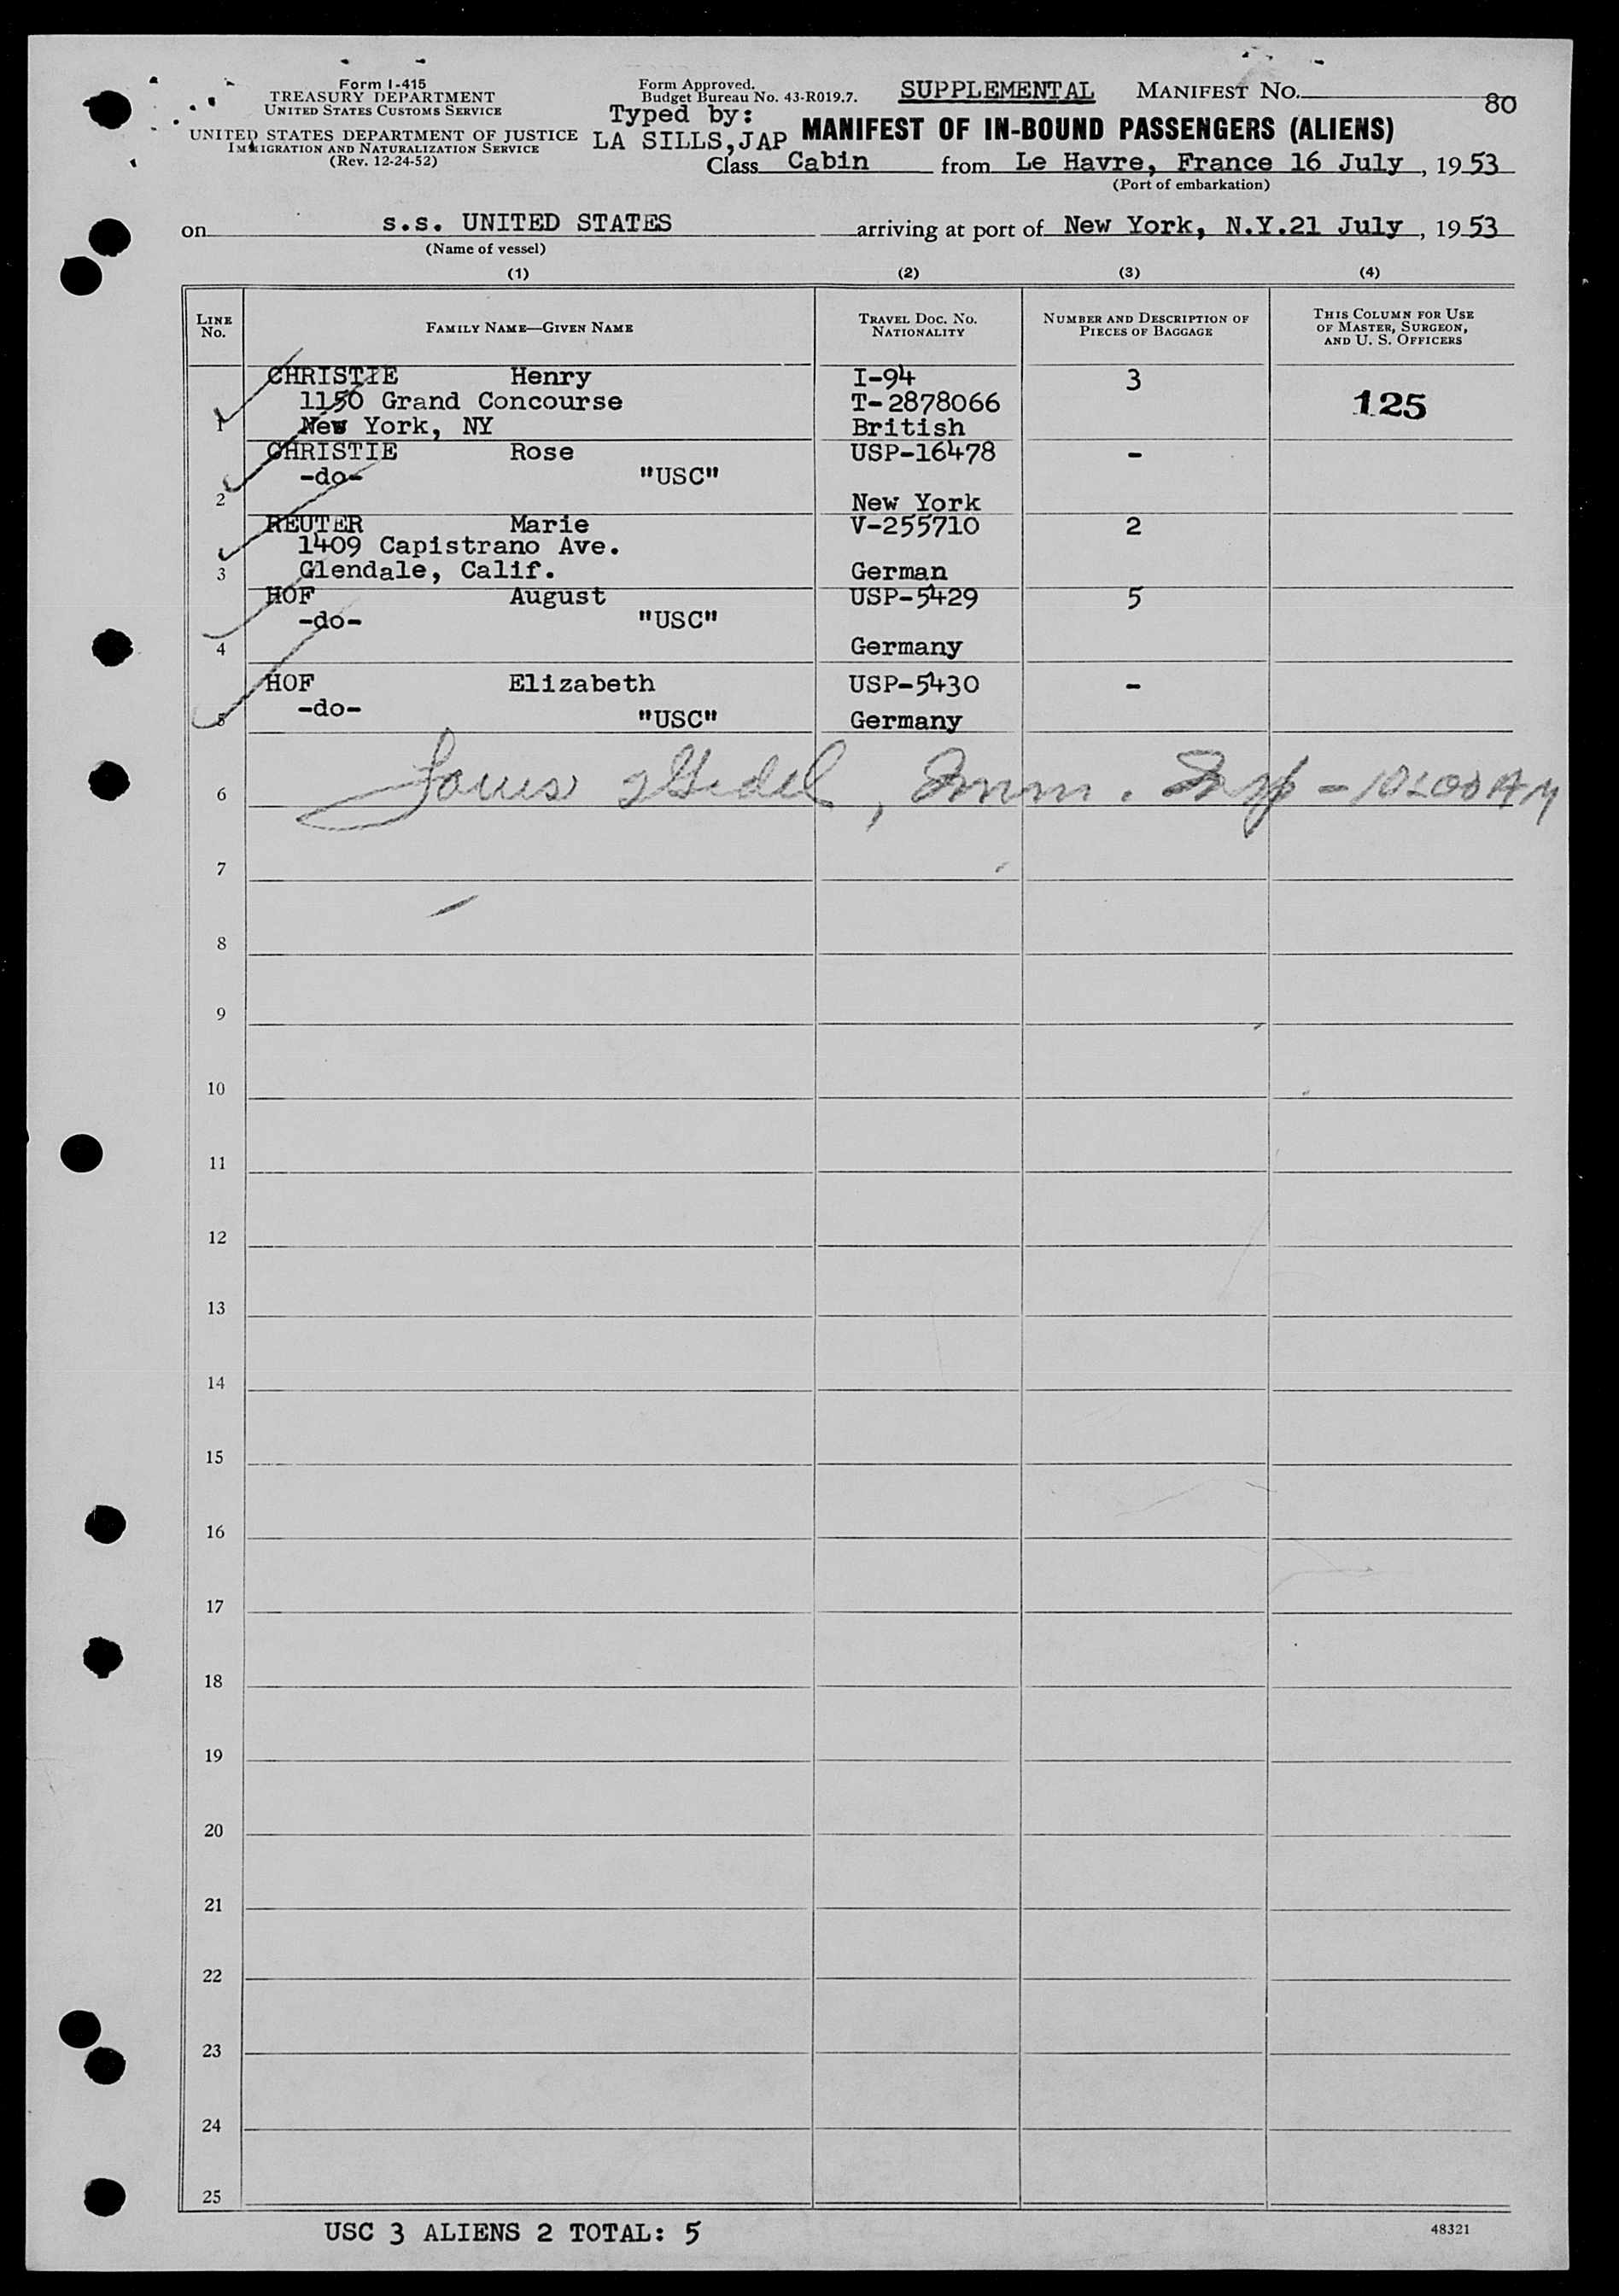 Form I-415
TREASURY DEPARTMENT
UNITED STATES CUSTOMS SERVICE
UNITED STATES DEPARTMENT OF JUSTICE
IMMIGRATION AND NATURALIZATION SERVICE
(Rev. 12-24-52)
Form Approved.
Budget Bureau No. 43-R019.7.
Typed by:
LA SILLS,JAP
SUPPLEMENTAL MANIFEST NO. 80
MANIFEST OF IN-BOUND PASSENGERS (ALIENS)
Class Cabin from Le Havre, France 16 July, 1953
(Port of embarkation)
on s.s. UNITED STATES arriving at port of New York, N.Y.21 July, 1953
(Name of vessel)
(1) (2) (3) (4)
LINE No. FAMILY NAME—GIVEN NAME TRAVEL DOC. NO. NATIONALITY NUMBER AND DESCRIPTION OF PIECES OF BAGGAGE THIS COLUMN FOR USE OF MASTER, SURGEON, AND U. S. OFFICERS
CHRISTIE Henry I-94 3
1150 Grand Concourse T-2878066 125
1 New York, NY British
CHRISTIE Rose USP-16478 -
-do- "USC"
2 New York
REUTER Marie V-255710 2
1409 Capistrano Ave.
3 Glendale, Calif. German
HOF August USP-5429 5
-do- "USC"
4 Germany
HOF Elizabeth USP-5430 -
-do-
5 "USC" Germany
6 Louis , Imm. Insp - 10:00 AM
7
8
9
10
11
12
13
14
15
16
17
18
19
20
21
22
23
24
25
USC 3 ALIENS 2 TOTAL: 5
48321